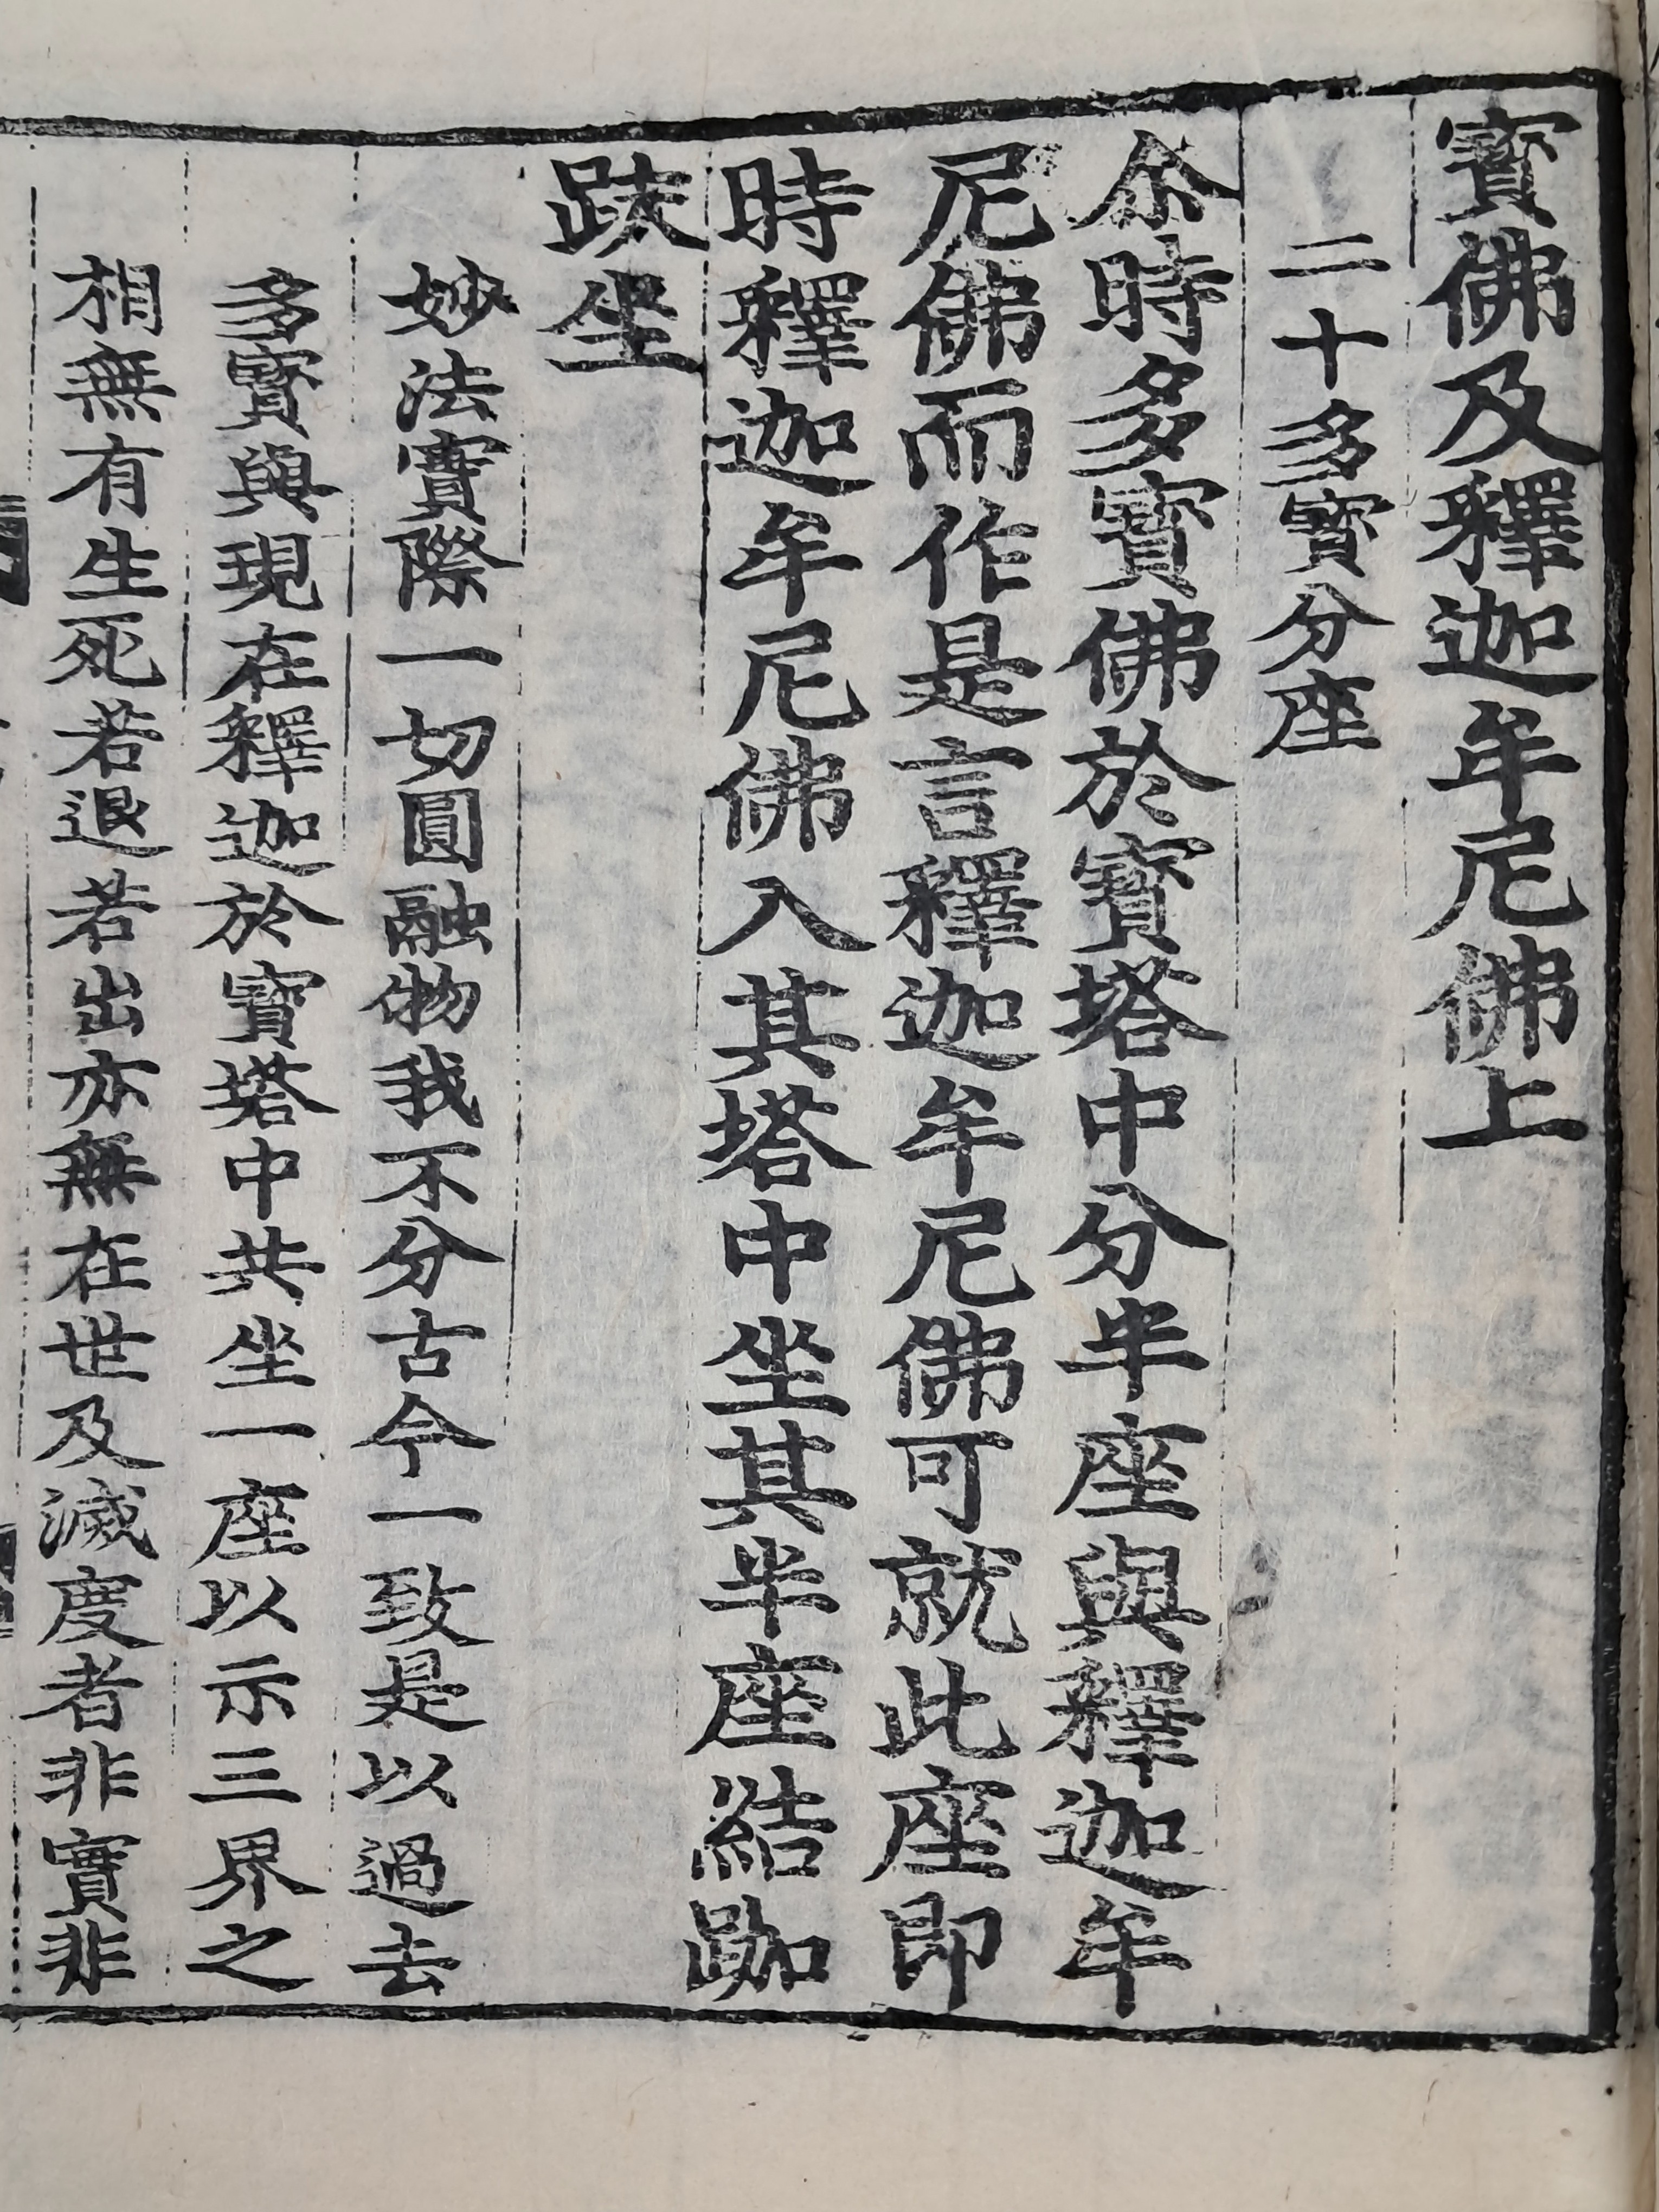 寶佛及釋迦牟尼佛上
二十多寶分座
尒時多寶佛於寶塔中分半座與釋迦牟
尼佛而作是言釋迦牟尼佛可就此座即
時釋迦牟尼佛入其塔中坐其半座結跏
趺坐
妙法實際一切圓融物我不分古今一致是以過去
多寶與現在釋迦於寶塔中共坐一座以示三界之
相無有生死若退若出亦無在世及滅度者非實非